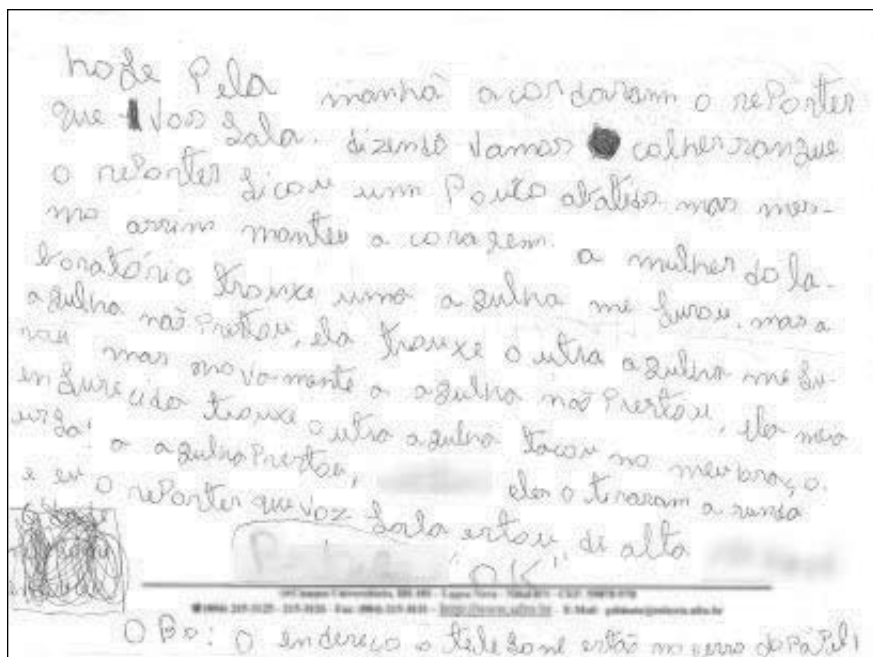 hoje Pela manhã acordaram o rePórter
que vos fala. dizendo vamos colher sangue
o rePorter ficou um Pouco abatido mas mes-
mo assim manteu a coragem. a mulher do la-
boratório trouxe uma agulha me furou, mas a
agulha não Prestou, ela trouxe outra agulha me fu-
rou mas novamente a agulha não Prestou, ela meia
enfurecida trouxe outra agulha tacou no meu braço.
a agulha Prestou, eles o tiraram a
e eu o rePorter que voz fala estou de alta
"OK"
OBs: O endereço o telefone estão no serro do PaPel